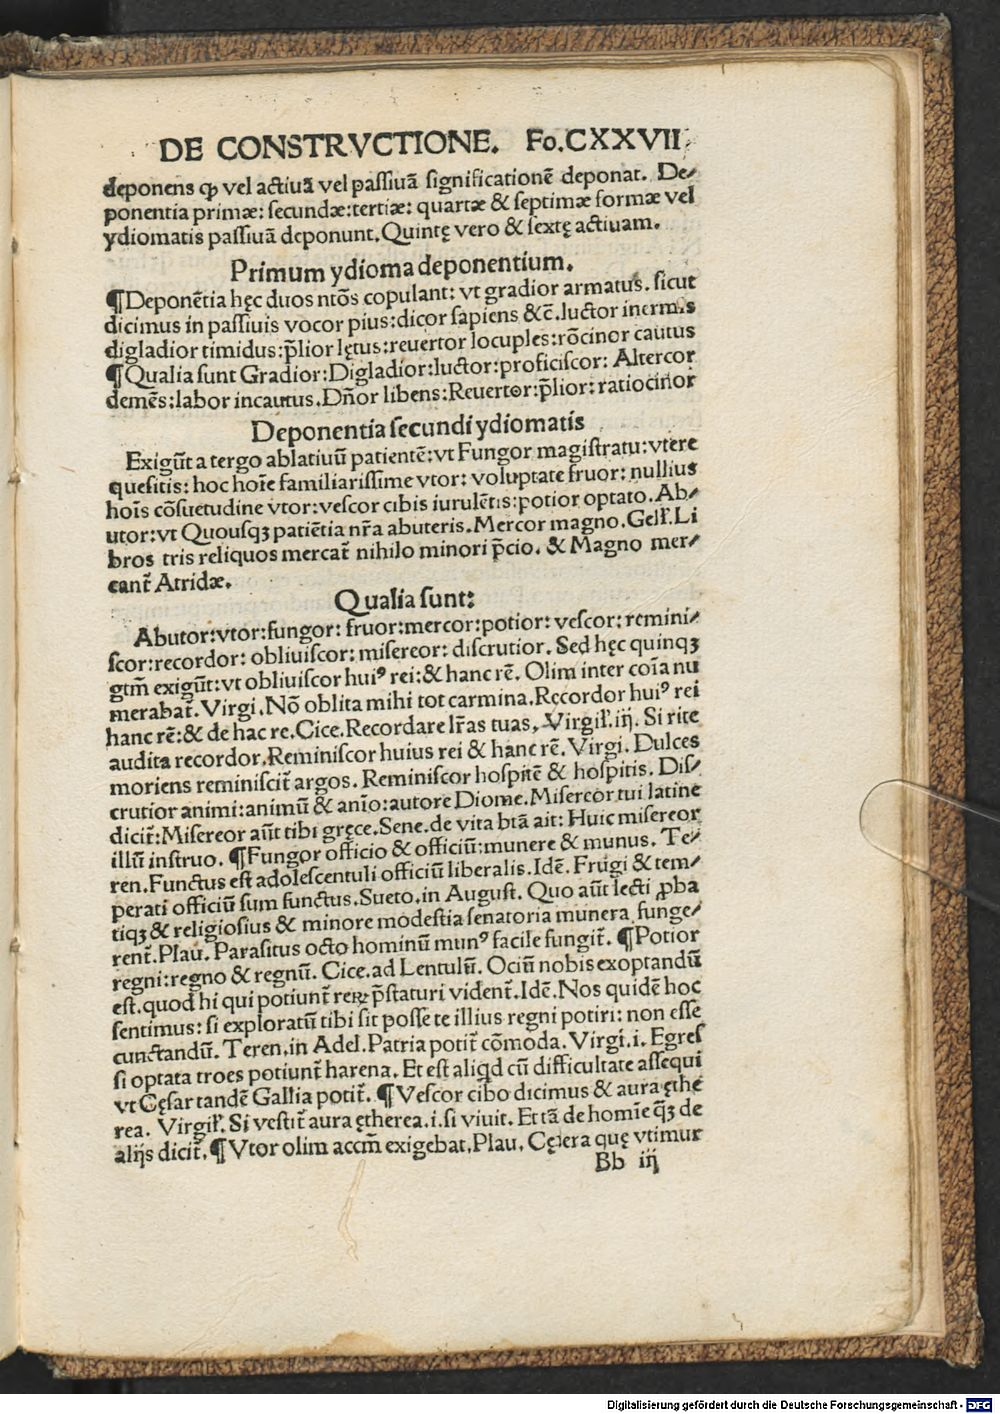 DE CONSTRVCTIONE. Fo.CXXVII.
deponens ꝙ vel actiuã vel paſſiuã ſignificationẽ deponat. De⸗
ponentia primæ: ſecundæ:tertiæ: quartæ & ſeptimæ formæ vel
ydiomatis paſſiuã deponunt.Quintę vero & ſextę actiuam.
Primum ydioma deponentium.
¶Deponẽtia hęc duos nto̅s copulant: vt gradior armatus. ſicut
dicimus in paſſiuis vocor pius:dicor ſapiens &c̃.luctor inermis
digladior timidus:p̃lior lętus:reuertor locuples:rõcinor cautus
¶Qualia ſunt Gradior:Digladior:luctor:proficiſcor: Altercor
demẽs:labor incautus.Dñor libens:Reuertor:p̃lior:ratiocinor
Deponentia ſecundi ydiomatis
Exigũt a tergo ablatiuũ patientẽ:vt Fungor magiſtratu:vtere
queſitis: hoc hoĩe familiariſſime vtor: voluptate fruor: nullius
hoĩs cõſuetudine vtor:veſcor cibis iurulẽtis:potior optato. Ab⸗
utor:vt Quouſqꝫ patiẽtia nr̃a abuteris.Mercor magno.Gell̃.Li
bros tris reliquos mercat̃ nihilo minori p̃cio. & Magno mer⸗
cant̃ Atridæ.
Qualia ſunt:
Abutor:vtor:fungor: fruor:mercor:potior: veſcor: remini⸗
ſcor:recordor: obliuiſcor: miſereor: diſcrutior. Sed hęc quinqꝫ
gtm̃ exigũt:vt obliuiſcor huiꝰ rei:& hanc rẽ. Olim inter coĩa nu
merabat̃. Virgi.Nõ oblita mihi tot carmina.Recordor huiꝰ rei
hanc rẽ:& de hac re.Cice.Recordare lr̃as tuas, Virgil̃.iij. Si rite
audita recordor.Reminiſcor huius rei & hanc rẽ. Virgi. Dulces
moriens reminiſcit̃ argos. Reminiſcor hoſpitẽ & hoſpitis. Diſ⸗
crutior animi:animũ & anĩo:autore Diome.Miſereor tui latine
dicit̃:Miſereor aũt tibi gręce.Sene.de vita btã ait: Huic miſereor
illũ inſtruo. ¶Fungor officio & officiũ:munere & munus. Te⸗
ren.Functus eſt adoleſcentuli officiũ liberalis.Idẽ. Frugi & tem⸗
perati officiũ ſum functus.Sueto.in Auguſt. Quo aũt lecti ꝓba
tiqꝫ & religioſius & minore modeſtia ſenatoria munera funge⸗
rent̃.Plau. Paraſitus octo hominũ munꝰ facile fungit̃. ¶Potior
regni:regno & regnũ. Cice.ad Lentulũ. Ociũ nobis exoptandũ
eſt.quod hi qui potiunt̃ reꝝ p̃ſtaturi vident̃.Idẽ.Nos quidẽ hoc
ſentimus: ſi exploratũ tibi ſit poſſe te illius regni potiri: non eſſe
cunctandũ. Teren.in Adel.Patria potit̃ cõmoda. Virgi.i. Egreſ
ſi optata troes potiunt̃ harena. Et eſt aliqd cũ difficultate aſſequi
vt Cęſar tandẽ Gallia potit̃. ¶Veſcor cibo dicimus & aura ęthe
rea. Virgil̃. Si veſtit̃ aura ętherea.i.ſi viuit. Et tã de homĩe q̃ꝫ de
alijs dicit̃. ¶Vtor olim accm̃ exigebat.Plau. Cętera quę vtimur
Bb iij
Digitalisierung gefördert durch die Deutsche Forschungsgemeinschaft - DFG